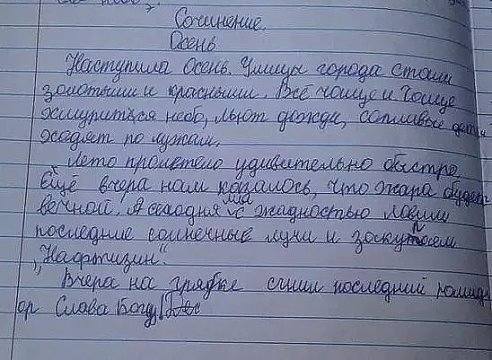 Сочинение.
Осень
Наступила Осень. Улицы города стали
золотыми и красными. Всё чаще и чаще
хмуриться небо, льют дожди, сопливые дети
ходят по лужам.
Лето пролетело удивительно быстро.
Ещё вчера нам казалось, что жара будет
вечной. А сегодня мы с жадностью ловим
последние солнечные лучи и закупаем
„Нафтизин".
Вчера на грядке сгнил последний помид
ор Слава Богу!